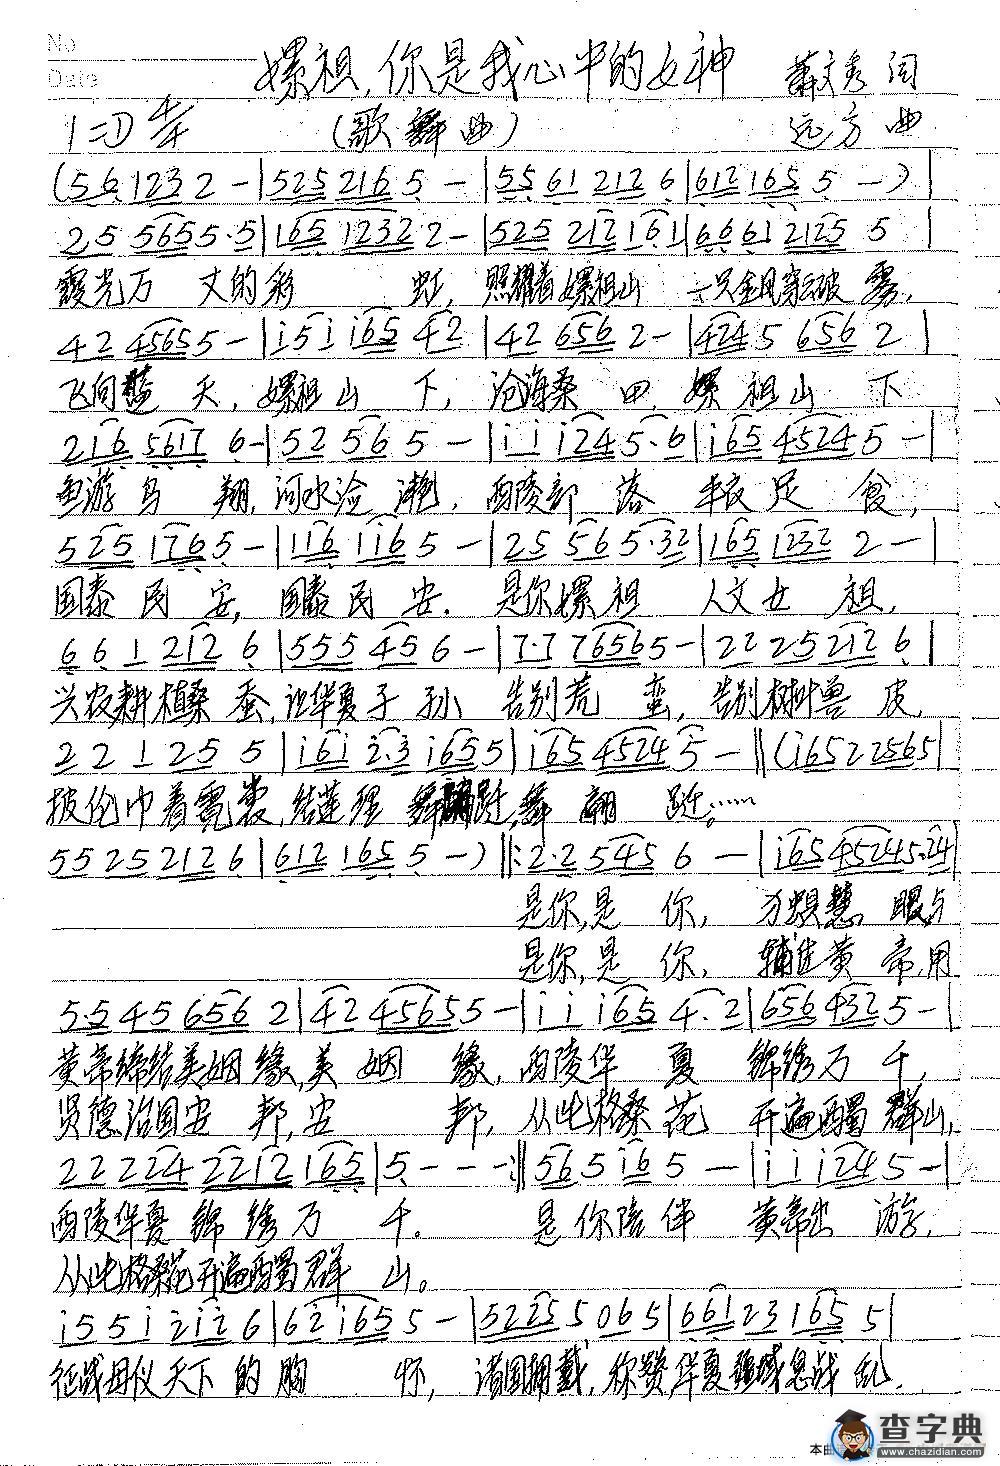 No
Date
嫘祖,你是我心中的女神
萧文秀 词
1=D 4/4 (歌舞曲) 远方 曲
(5 6 1 2 3 2 - | 5 2 5 2 1 6 5 - | 5 5 6 1 2 1 2 6 | 6 1 2 1 6 5 5 - ) |
2 5 5 6 5 5 . 5 | 1 6 5 1 2 3 2 2 - | 5 2 5 2 1 2 1 6 1 | 6 6 6 1 2 1 2 5 5 |
霞光万 丈的彩 虹, 照耀着嫘祖山 一只金凤穿破 雾,
4 2 4 5 6 5 5 - | i 5 i i 6 5 4 2 | 4 2 6 5 6 2 - | 4 2 4 5 6 5 6 2 |
飞向蓝 天, 嫘祖山 下, 沧海桑 田, 嫘 祖山 下
2 1 6 5 6 1 7 6 - | 5 2 5 6 5 - | i i i 2 4 5 . 6 | i 6 5 4 5 2 4 5 - |
鱼游 鸟 翔, 河水沧 滟, 西陵部 落 丰衣 足 食,
5 2 5 1 7 6 5 - | 1 1 6 1 1 6 5 - | 2 5 5 6 5 . 3 2 | 1 6 5 1 2 3 2 2 - |
国泰 民 安, 国泰 民 安. 是你嫘 祖 人文 女 祖,
6 6 1 2 1 2 6 | 5 5 5 4 5 6 - | 7 . 7 7 6 5 6 5 - | 2 2 2 5 2 1 2 6 |
兴农耕植桑 蚕, 让华夏 子 孙 告别 荒 蛮, 告别树叶兽 皮,
2 2 1 2 5 5 | i 6 i 2 . 3 i 6 5 5 | i 6 5 4 5 2 4 5 - ‖ (i 6 5 2 2 5 6 5 |
披纶巾着霓裳, 结莲理 舞翩跹, 舞 翩 跹。……
5 5 2 5 2 1 2 6 | 6 1 2 1 6 5 5 - ) ‖: 2 . 2 5 4 5 6 - | i 6 5 4 5 2 4 5 . 2 4 |
是你, 是 你, 慧 眼与
是你, 是 你, 辅佐黄 帝, 用
5 . 5 4 5 6 5 6 2 | 4 2 4 5 6 5 5 - | i i i 6 5 4 . 2 | 6 5 6 4 3 2 5 - |
黄帝缔结美姻 缘, 美 姻 缘, 西陵华 夏 锦绣万 千,
贤德治国安 邦, 安 邦, 从此格桑 花 开遍西蜀 群山,
2 2 2 2 4 2 2 1 2 1 6 5 | 5 - - - :‖ 5 6 5 i 6 5 - | i i i 2 4 5 - |
西陵华夏 锦 绣 万 千。 是 你陪 伴 黄帝出 游,
从此格桑花开遍西蜀 群 山。
i 5 5 i 2 i 2 6 | 6 2 i 6 5 5 - | 5 2 2 5 5 0 6 5 | 6 6 1 2 3 1 6 5 5 |
征战母仪天下 的 胸 怀, 诸国拥戴, 你赞华夏疆域息战 乱.
本曲
查字典
www.chazidian.com